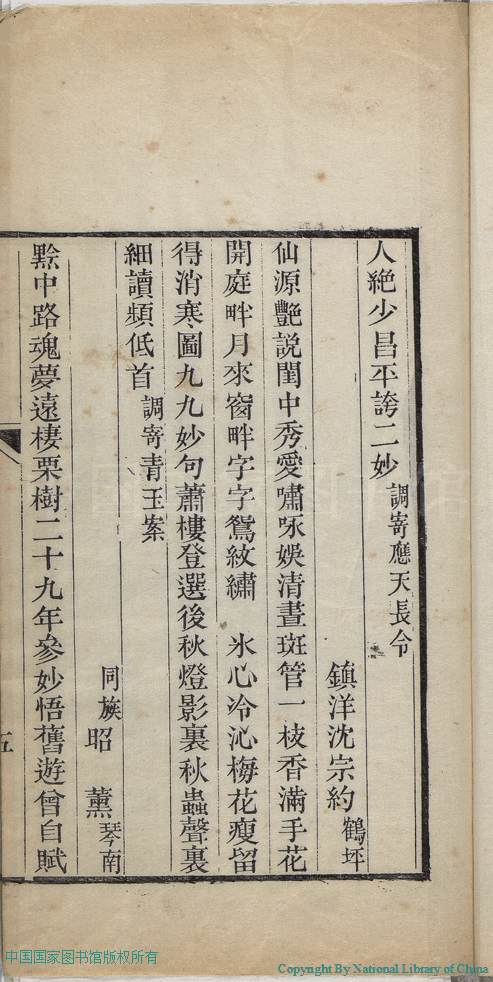 人絶少昌平誇二妙 調寄應天長令
鎮洋沈宗約 鶴坪
仙源艷説閨中秀愛嘯咏娛清晝斑管一枝香滿手花
開庭畔月來窗畔字字鴛紋繡 氷心冷沁梅花瘦留
得消寒圖九九妙句蕭樓登選後秋燈影裏秋蟲聲裏
細讀頻低首 調寄青玉案
同族昭薰 琴南
黔中路魂夢遠棲栗樹二十九年參妙悟舊遊曾自賦
五
中国国家图书馆版权所有
Copyright By National Library of China